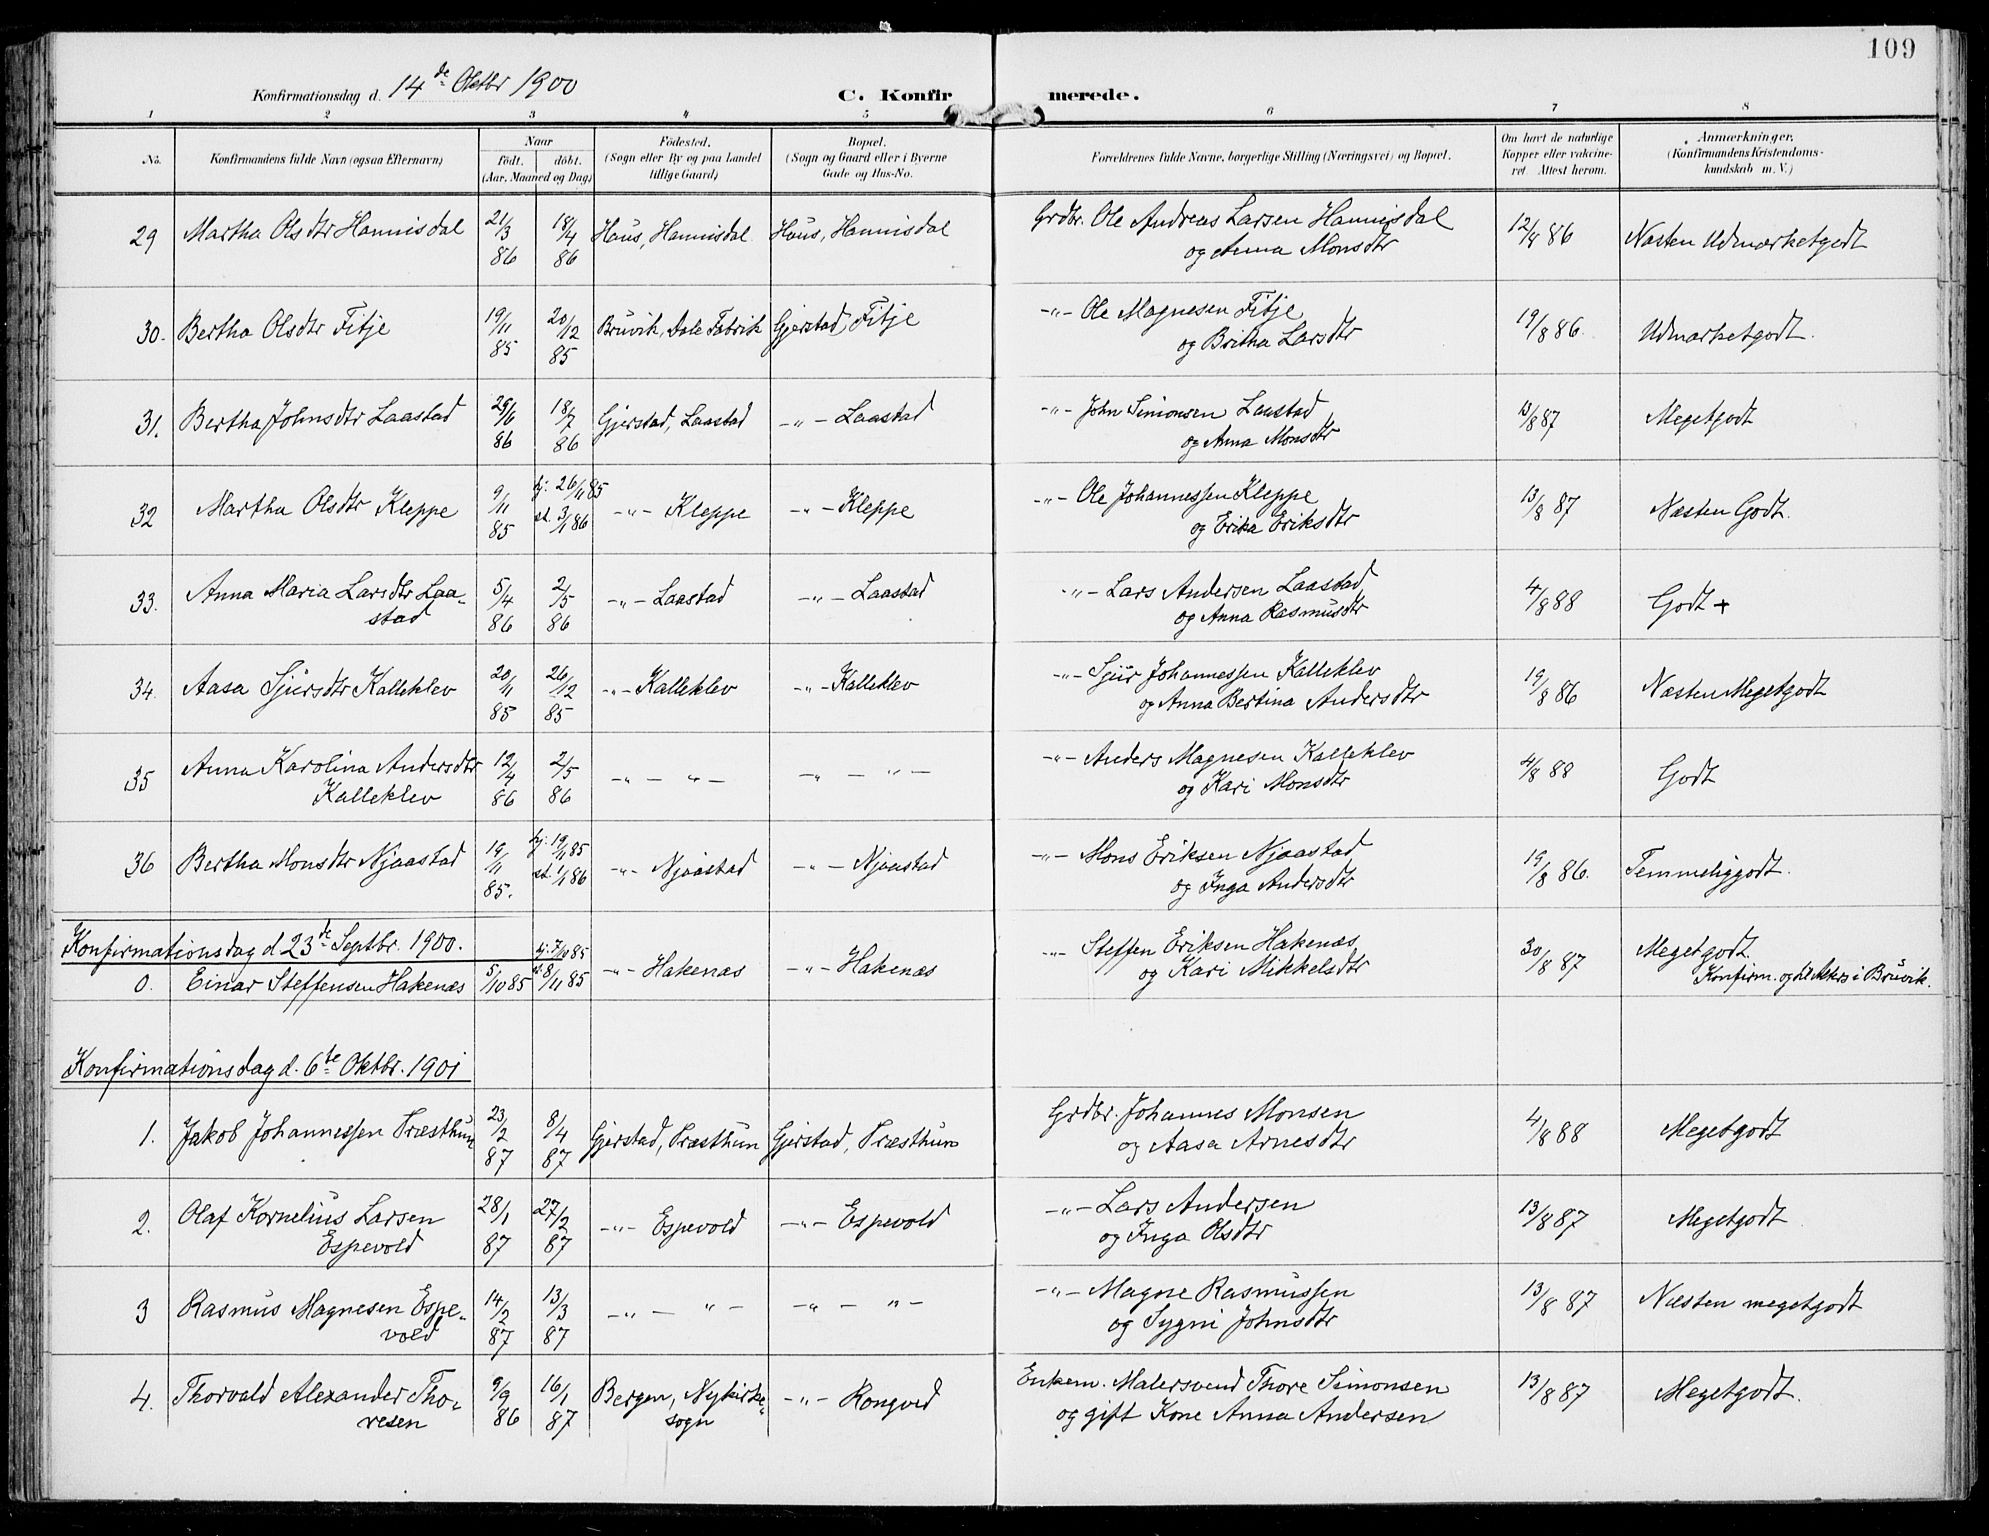 109
Konfirmationsdag d. 14de Oktbr 1900
C. Konfirmerede.
1 2 3 4 5 6 7 8
No. Konfirmandens fulde Navn (ogsaa Efternavn) Naar födt. döbt. (Aar, Maaned og Dag) Födested. (Sogn eller By og paa Landet tillige Gaard) Bopæl. (Sogn og Gaard eller i Byerne Gade og Hus-No. Forældrenes fulde Navne, borgerlige Stilling (Næringsvei) og Bopæl. Om havt de naturlige Kopper eller vakcineret. Attest herom. Anmærkninger. (Konfirmandens Kristendomskundskab m. V.)
29 Martha Olsdtr Hannisdal 21/3 86 18/4 86 Haus, Hannisdal Haus, Hannisdal Grdbr. Ole Andreas Larsen Hannisdal og Anna Monsdtr 12/8 86 Næsten Udmærketgodt
30. Bertha Olsdtr Fitje 19/11 85 20/12 85 Bruvik, Dale Fabrik Gjerstad, Fitje -"- Ole Magnesen Fitje og Britha Larsdtr 19/8 86. Udmærketgodt.
31. Bertha Johnsdtr Laastad 29/6 86 18/7 86 Gjerstad, Laastad -"- Laastad -"- John Simonsen Laastad og Anna Monsdtr 13/8 87 Megetgodt
32 Martha Olsdtr Kleppe 9/11 85 hj: 26/11 85 st. 3/1 86 -"- Kleppe -"- Kleppe -"- Ole Johannessen Kleppe og Erika Eriksdtr 13/8 87 Næsten Godt.
33. Anna Maria Larsdtr Laastad 5/4 86 2/5 86 -"- Laastad -"- Laastad -"- Lars Andersen Laastad og Anna Rasmusdtr 4/8 88 Godt +
34. Aasa Sjursdtr Kalleklev 20/11 85 26/12 85 -"- Kalleklev -"- Kalleklev -"- Sjur Johannessen Kalleklev og Anna Bertina Andersdtr 19/8 86 Næsten Megetgodt
35 Anna Karolina Andersdtr Kalleklev 12/4 86 2/5 86 -"- "- -"- "- -"- Anders Magnesen Kalleklev og Kari Monsdtr 4/8 88 Godt
36 Bertha Monsdtr Njaastad 19/11 85. hj: 19/11 85 st. 1/1 86 -"- Njaastad -"- Njaastad -"- Mons Eriksen Njaastad og Inga Andersdtr 19/8 86. Temmeliggodt.
Konfirmationsdag d 23de Septbr. 1900.
0. Einar Steffensen Hakenæs 5/10 85 hj: 7/10 85 st. 8/11 85 -"- Hakenæs -"- Hakenæs -"- Steffen Eriksen Hakenæs og Kari Mikkelsdtr 30/8 87 Megetgodt. Konfirm. og til Alters i Bruvik.
Konfirmationsdag d. 6te Oktbr. 1901
1. Jakob Johannessen Præsthun 23/2 87 8/4 87 Gjerstad, Præsthun Gjerstad, Præsthun Grdbr. Johannes Monsen og Aasa Arnesdtr 4/8 88 Megetgodt
2. Olaf Kornelius Larsen Espevold 28/1 87 27/2 87 -"- Espevold -"- Espevold -"- Lars Andersen og Inga Olsdtr 13/8 87 Megetgodt
3 Rasmus Magnesen Espevold 14/2 87 13/3 87 -"- "- -"- "- -"- Magne Rasmussen og Sygni Johnsdtr 13/8 87 Næsten megetgodt
4. Thorvald Alexander Thoresen 9/9 86 16/1 87 Bergen, Nykirkesogn -"- Rongved Enkem. Malersvend Thore Simonsen og gift Kone Anna Andersen 13/8 87 Megetgodt.